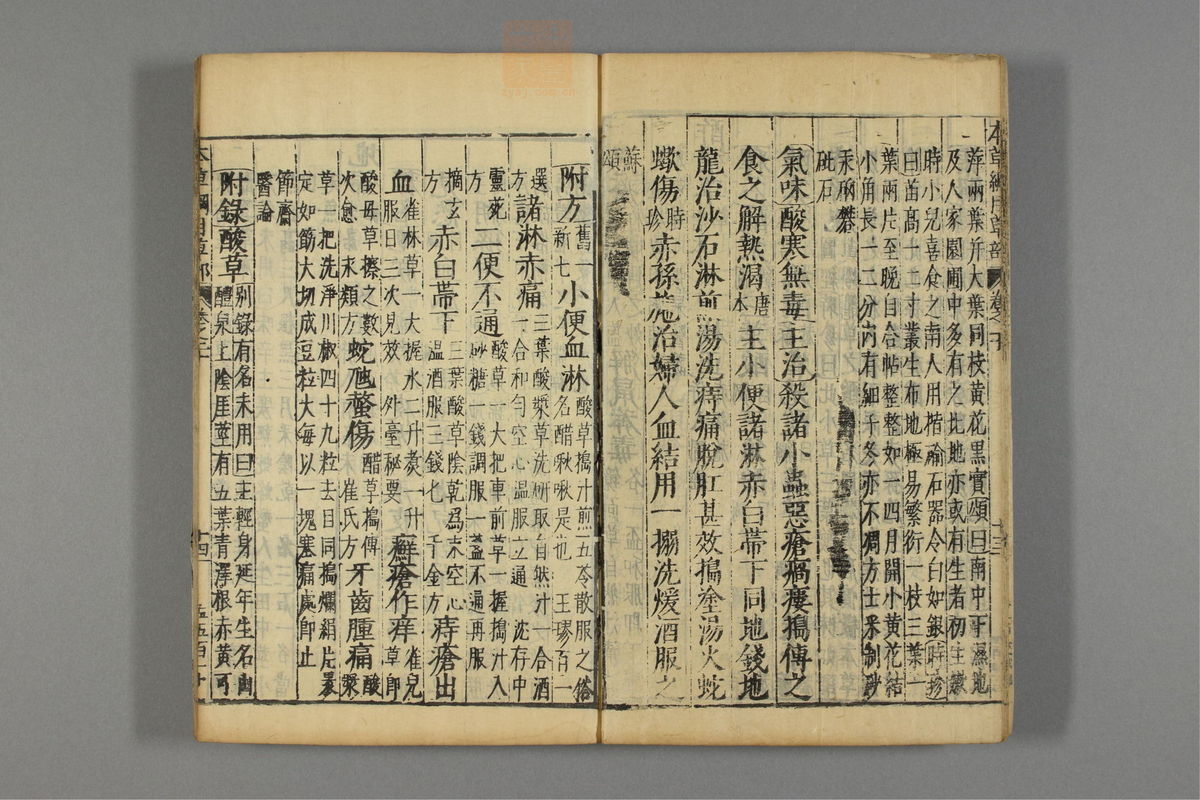 本草綱目草部 卷之二十
萍兩葉并大葉同枝黃花黑實頌曰南中下濕地
及人家園圃中多有之北地亦或有生者初生嫩
時小兒喜食之南人用楷鍮石器令白如銀時珍
曰苗高一二寸叢生布地極易繁衍一枝三葉一
葉兩片至晚自合帖整整如一四月開小黃花結
小角長一二分內有細子冬亦不凋方士采制砂
汞硇礬
砒石
氣味酸寒無毒主治殺諸小蟲惡瘡瘑瘻搗傅之
食之解熱渴唐本主小便諸淋赤白帶下同地錢地
龍治沙石淋煎湯洗痔痛脫肛甚效搗塗湯火蛇
蠍傷時珍赤孫施治婦人血結用一搦洗煖酒服之
蘇頌
附方舊一新七小便血淋酸草搗汁煎五苓散服之俗名醋啾啾是也王璆百一
選方諸淋赤痛三葉酸漿草洗研取自然汁一合酒一合和勻空心溫服立通沈存中
靈苑方二便不通酸草一大把車前草一握搗汁入砂糖一錢調服一盞不通再服
摘玄方赤白帶下三葉酸草陰乾爲末空心溫酒服三錢匕千金方痔瘡出
血雀林草一大握水二升煮一升服日三次見效外臺秘要癬瘡作痒雀兒草即
酸母草擦之數次愈永類方蛇虺螫傷醋草搗傅崔氏方牙齒腫痛酸漿
草一把洗淨川椒四十九粒去目同搗爛絹片裹
定如筯大切成豆粒大每以一塊塞痛處即止
節齋醫論
附錄酸草別錄有名未用曰主輕身延年生名山醴泉上陰厓莖有五葉青澤根赤黃可
本草綱目草部 卷之二十
十四